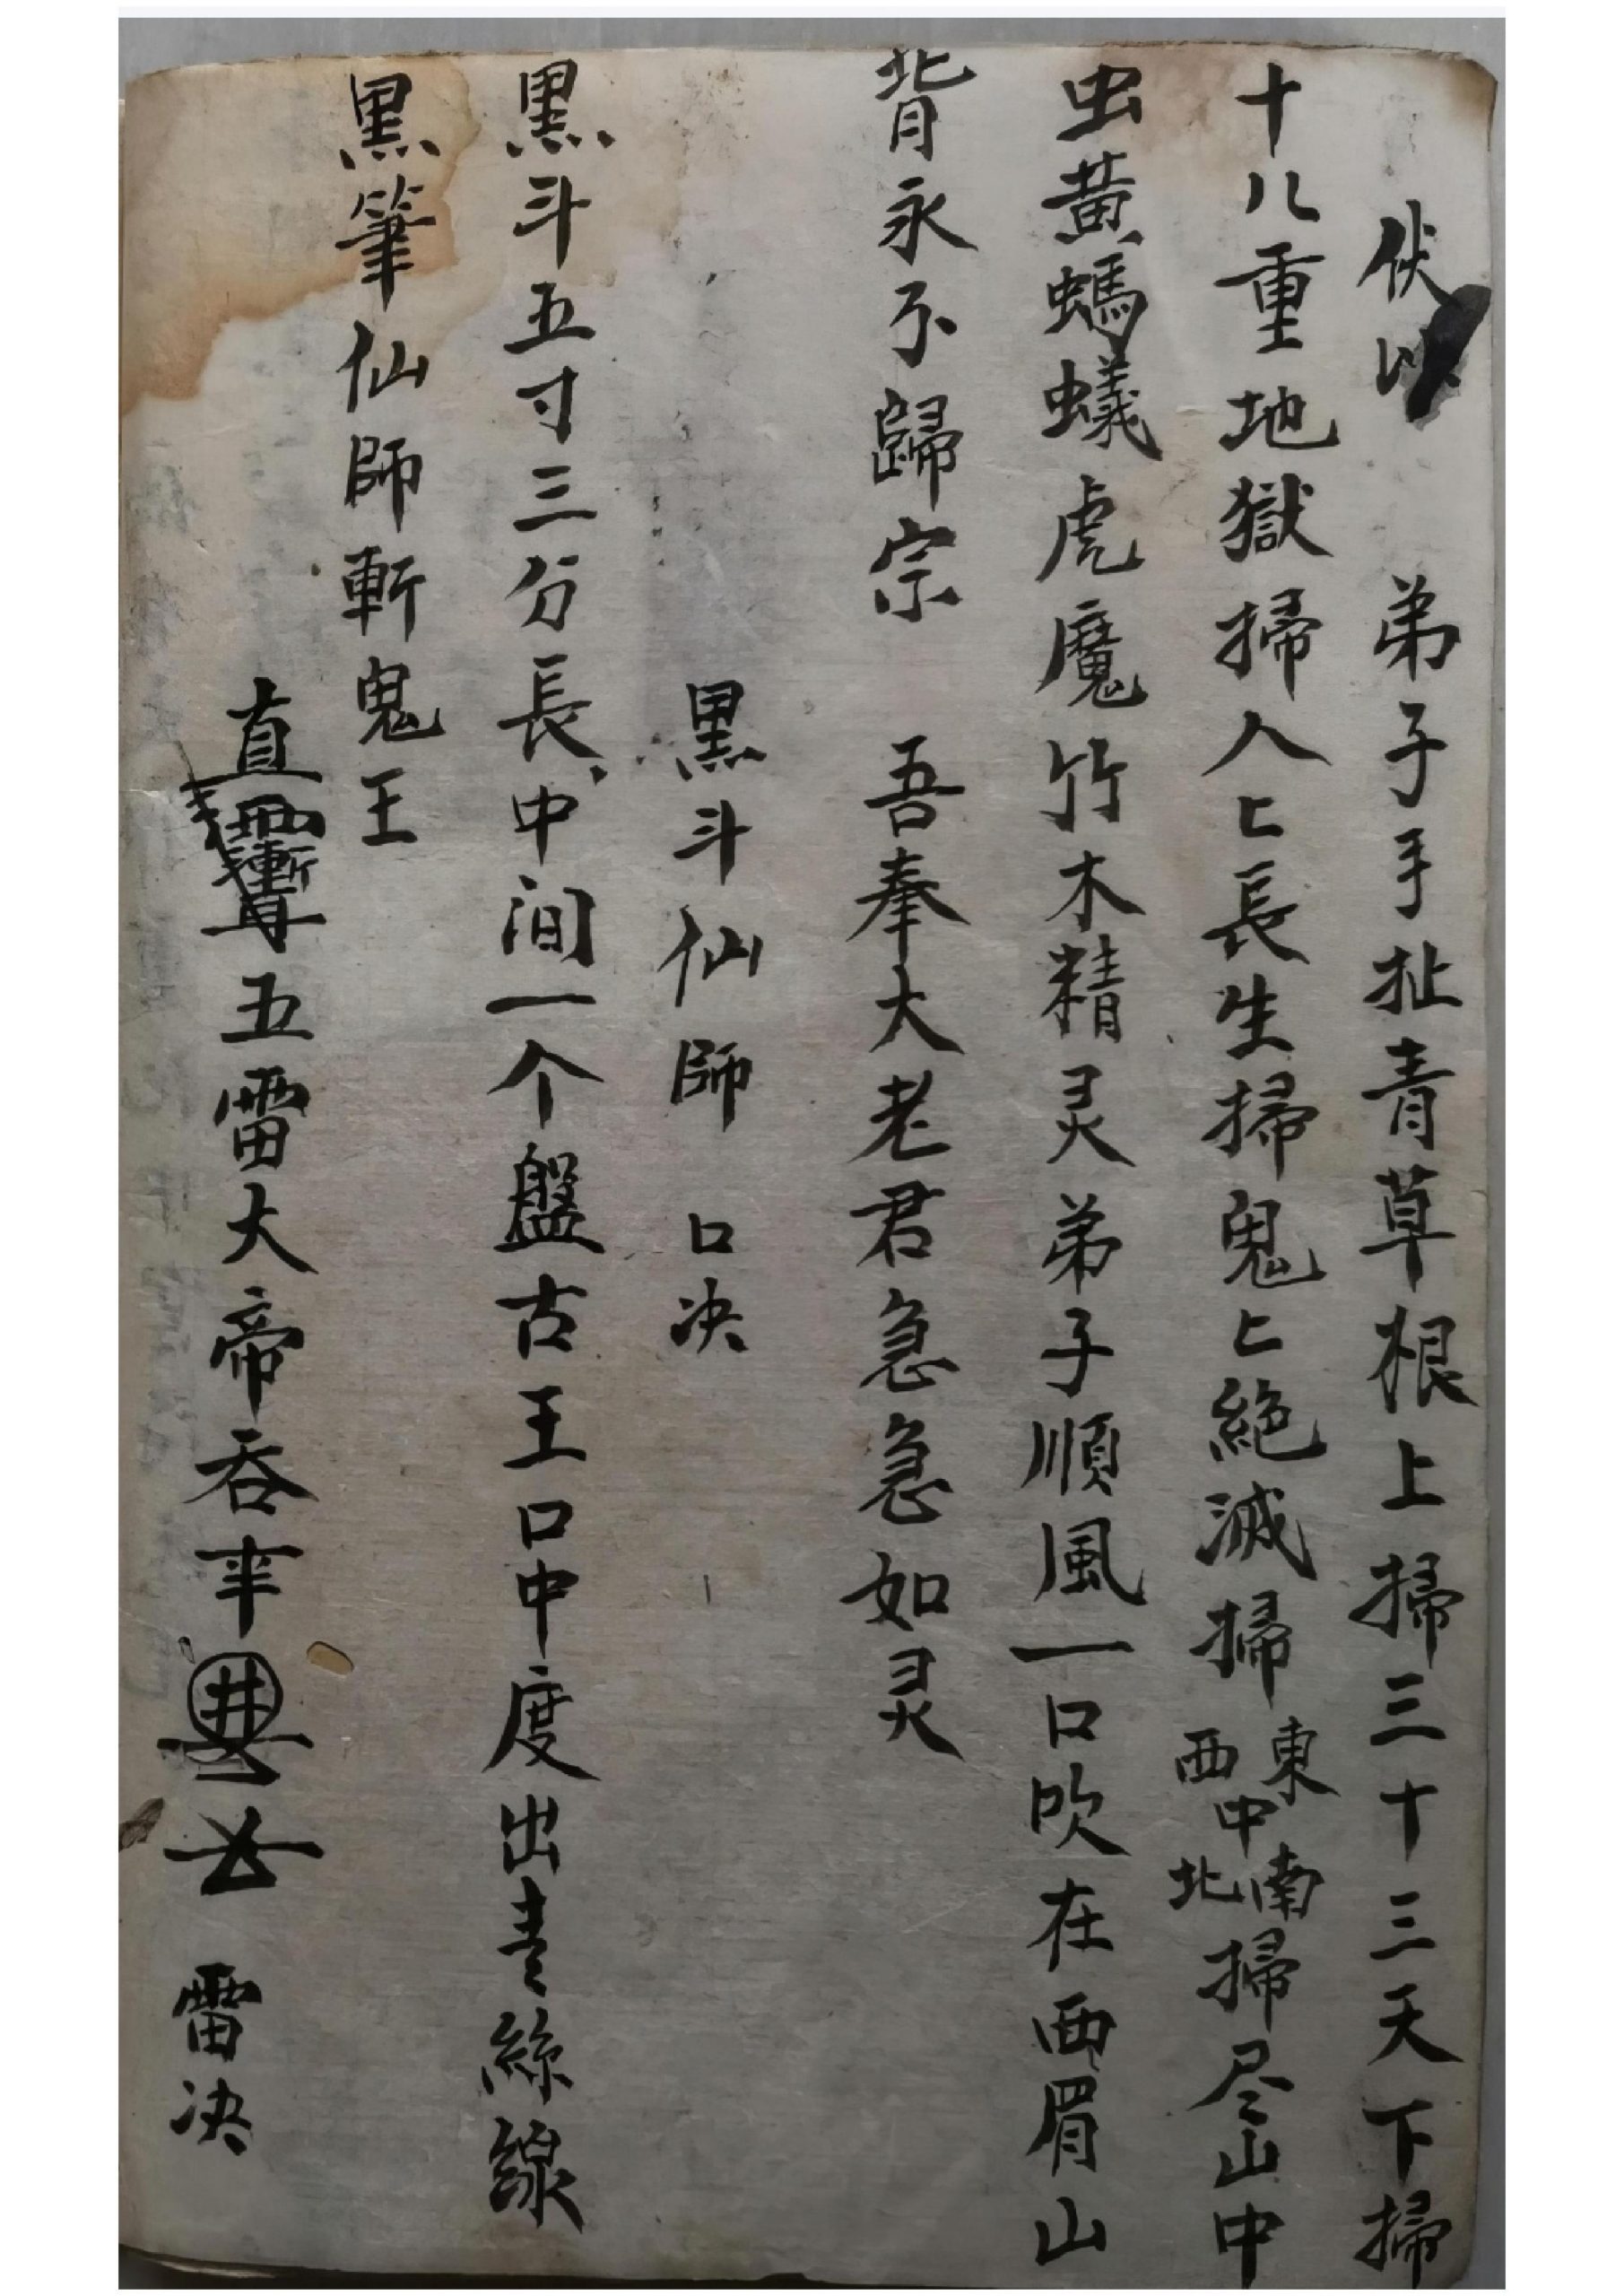 伏以 弟子手扯青草根上掃三十三天下掃
十八重地獄掃人匕長生掃鬼匕絕滅掃東西中南北掃尽山中
虫黃螞蟻虎魔竹木精灵弟子順風一口吹在西眉山
背永不歸宗 吾奉太老君急急如灵
黑斗仙師 口决
黑斗五寸三分長中间一个盤古王口中度出青絲線
黑筆仙師斬鬼王
直五雷大帝吞 雷决